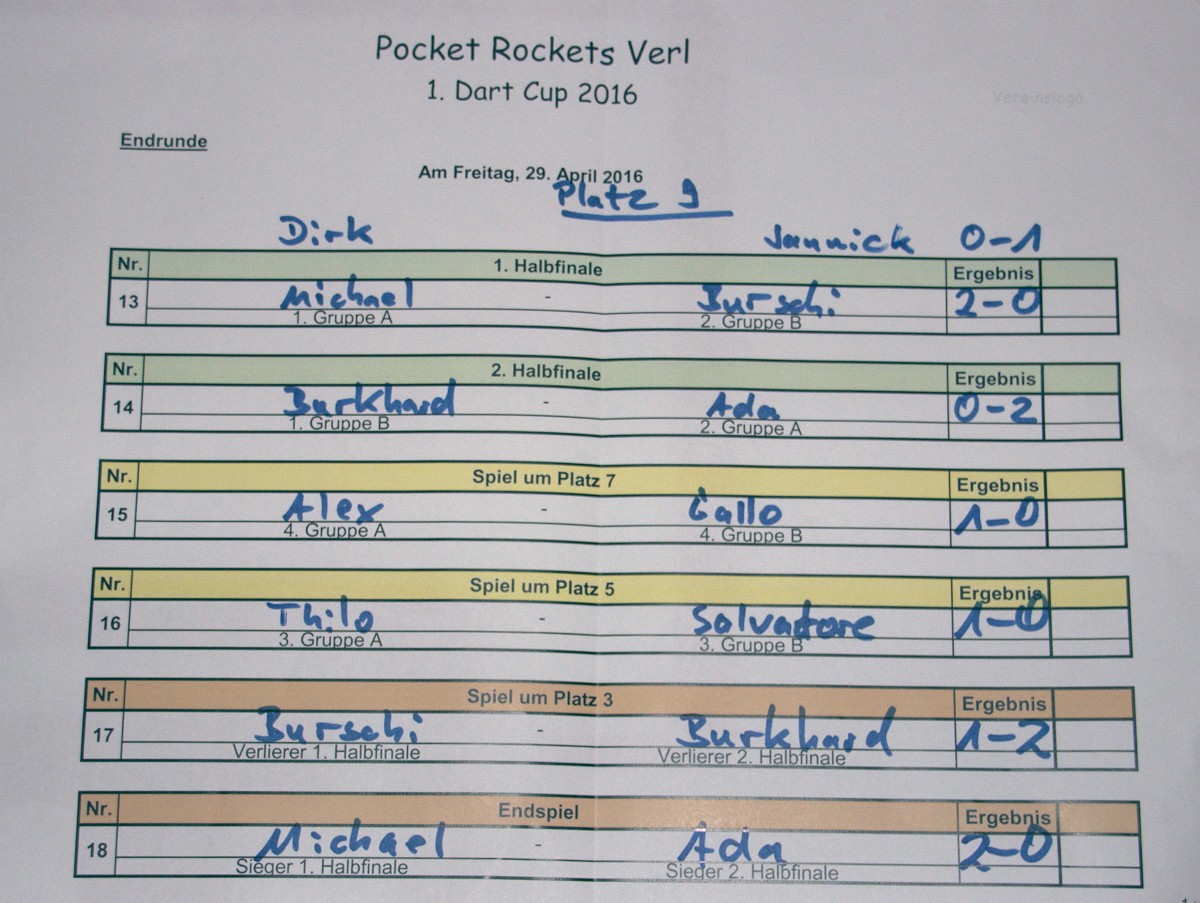 Pocket Rockets Verl
1. Dart Cup 2016
Vereinslogo
Endrunde
Am Freitag, 29. April 2016
Platz 9
Dirk Jannick 0-1
Nr. 1. Halbfinale Ergebnis
13 Michael - Burschi 2-0
1. Gruppe A 2. Gruppe B
Nr. 2. Halbfinale Ergebnis
14 Burkhard - Ada 0-2
1. Gruppe B 2. Gruppe A
Nr. Spiel um Platz 7 Ergebnis
15 Alex - Gallo 1-0
4. Gruppe A 4. Gruppe B
Nr. Spiel um Platz 5 Ergebnis
16 Thilo - Salvatore 1-0
3. Gruppe A 3. Gruppe B
Nr. Spiel um Platz 3 Ergebnis
17 Burschi - Burkhard 1-2
Verlierer 1. Halbfinale Verlierer 2. Halbfinale
Nr. Endspiel Ergebnis
18 Michael - Ada 2-0
Sieger 1. Halbfinale Sieger 2. Halbfinale